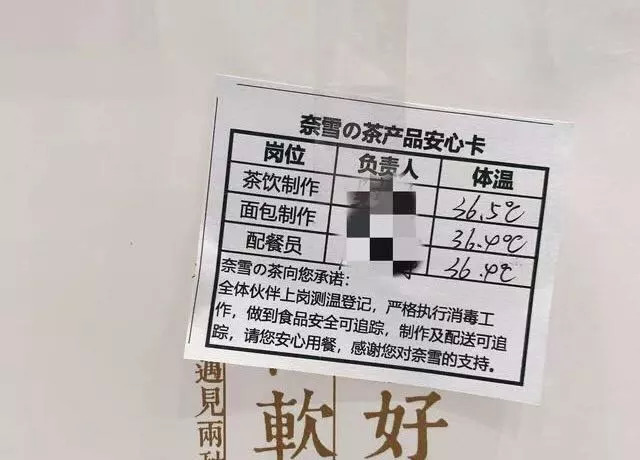 奈雪の茶产品安心卡
岗位 负责人 体温
茶饮制作 36.5℃
面包制作 36.4℃
配餐员 36.4℃
奈雪の茶向您承诺：
全体伙伴上岗测温登记，严格执行消毒工
作，做到食品安全可追踪，制作及配送可追
踪，请您安心用餐，感谢您对奈雪的支持。
遇見兩
軟
好